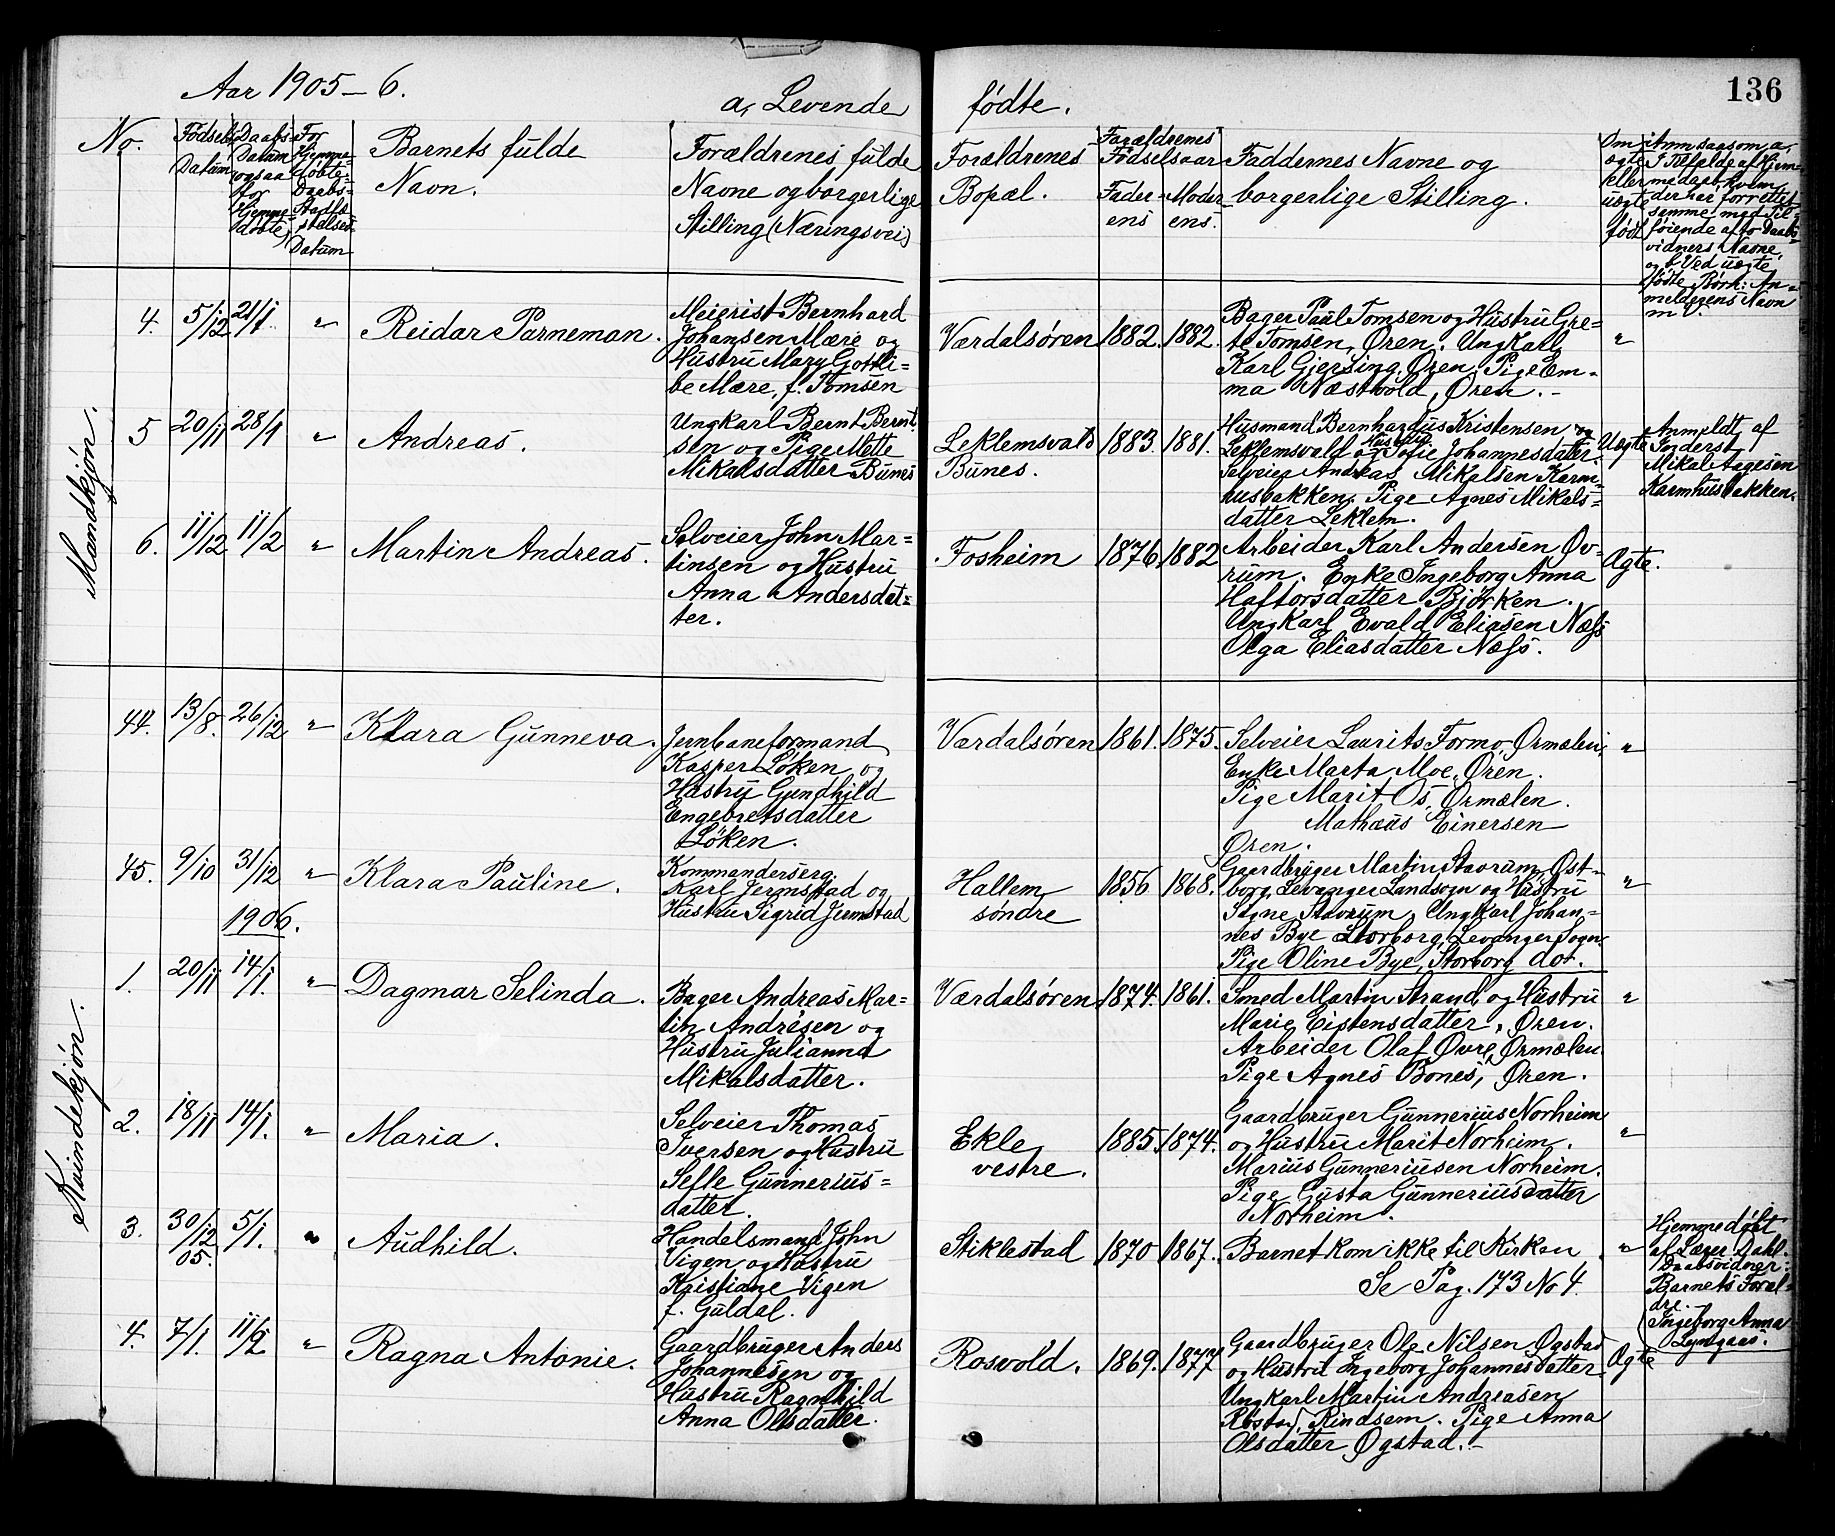 136
Aar 1905-6.
a, Levende fødte.
No.
Fødsels
Datum
Daabs-
Datum
ogsaa
for
Hjemme-
døbte
For
Hjemme-
døbte
Daabs-
Stadfæ-
stelses-
Datum
Barnets fulde
Navn.
Forældrenes fulde
Navne og borgerlige
Stilling (Næringsvei)
Forældrenes
Bopæl.
Forældrenes
Fødselsaar
Fader-
ens
Moder-
ens.
Faddernes Navne og
borgerlige Stilling.
Om
ægte
eller
uægte
født
Anm saasom a,
I Tilfælde af Hjem-
medaab, hvem
der har forrettet
samme med Til-
føiende af to Daabs-
vidners Navne,
og b Ved uægte
fødte Børn: An-
meldegens Navn
m. v.
Mandkjøn.
4. 5/12 21/1 " Reidar Parneman.
Meierist Bernhard
Johansen Mære og
Hustru Mary Gottli-
be Mære, f. Tomsen
Værdalsøren 1882. 1882.
Bager Paul Tomsen og Hustru Gre-
te Tomsen, Øren. Ungkarl
Karl Gjersing, Øren, Pige Em-
ma Næstvold, Øren.-
"
5 20/11 28/1 " Andreas.
Ungkarl Bernt Bernt-
sen og Pige Mette
Mikalsdatter Bunes
Leklemsvald
Bunes.
1883. 1881.
Husmand Bernhardus Kristensen
Leklemsvald og Hustru Sofie Johannesdatter
Selveier Andreas Mikalsen Karm-
husbakken, Pige Agnes Mikals-
datter Leklem.
Uægte
Anmeldt af
Inderst
Mikal Aagesen
Karmhusbakken.
6. 11/12 11/2 " Martin Andreas.
Selveier John Mar-
tinsen og Hustru
Anna Andersdat-
ter.
Fosheim 1876. 1882
Arbeider Karl Andersen Øv-
rum. Enke Ingeborg Anna
Haftorsdatter Bjørken.
Ungkarl Evald Eliasen Næss
Olga Eliasdatter Næss.
Ægte.
Kvindekjøn.
44. 13/8. 26/12 " Klara Gunneva.
Jernbaneformand
Kasper Löken og
Hustru Gundhild
Engebretsdatter
Löken.
Værdalsøren 1861. 1875.
Selveier Laurits Formo, Ørmælen,
Enke Marta Moe, Øren.
Pige Marit Os, Ørmælen.
Mathæus Einersen
Øren.
"
45. 9/10 31/12 " Klara Pauline.
Kommanderserg.
Karl Jermstad og
Hustru Sigrid Jermstad
Hallem
søndre
1856 1868.
Gaardbruger Martin Stavrum, Øst-
borg, Levanger Landsogn og Hustru
Signe Stavrum, Ungkarl Johan-
nes Bye Storborg, Levanger Sogn.
Pige Oline Bye, Storborg dot.
"
1906.
1. 20/11 14/1. " Dagmar Selinda.
Bager Andreas Mar-
tin Andrésen og
Hustru Julianna
Mikalsdatter.
Værdalsøren 1874. 1861.
Smed Martin Strand og Hustru
Marie Eistensdatter, Øren.
Arbeider Olaf Øvre, Ørmælen
Pige Agnes Bones, Øren.
"
2. 18/11 14/1. " Maria.
Selveier Thomas
Iversen og Hustru
Selle Gunnerius-
datter.
Ekle
vestre.
1885. 1874.
Gaardbruger Gunnerius Norheim
og Hustru Marit Norheim.
Marius Gunneriusen Norheim.
Pige Gusta Gunneriusdatter
Norheim.
"
3. 30/12 05. 5/1. " Audhild.
Handelsmand John
Vigen og Hustru
Kristiane Vigen
f. Guldal.
Stiklestad 1870 1867.
Barnet kom ikke til Kirken
Se Pag. 173 No 4.
"
Hjemmedøbt
af Læge Dahl.
Daabsvidner:
Barnets Foræl-
dre.
Ingeborg Anna
Lyngaas.
4. 7/1. 11/2 " Ragna Antonie.
Gaardbruger Anders
Johannesen og
Hustru Ragnhild
Anna Olsdatter.
Rosvold. 1869. 1877
Gaardbruger Ole Nilsen Øgstad
og Hustru Ingeborg Johannesdatter
Ungkarl Martin Andreasen
Røstad, Rindsem. Pige Anna
Olsdatter Øgstad.-
Ægte